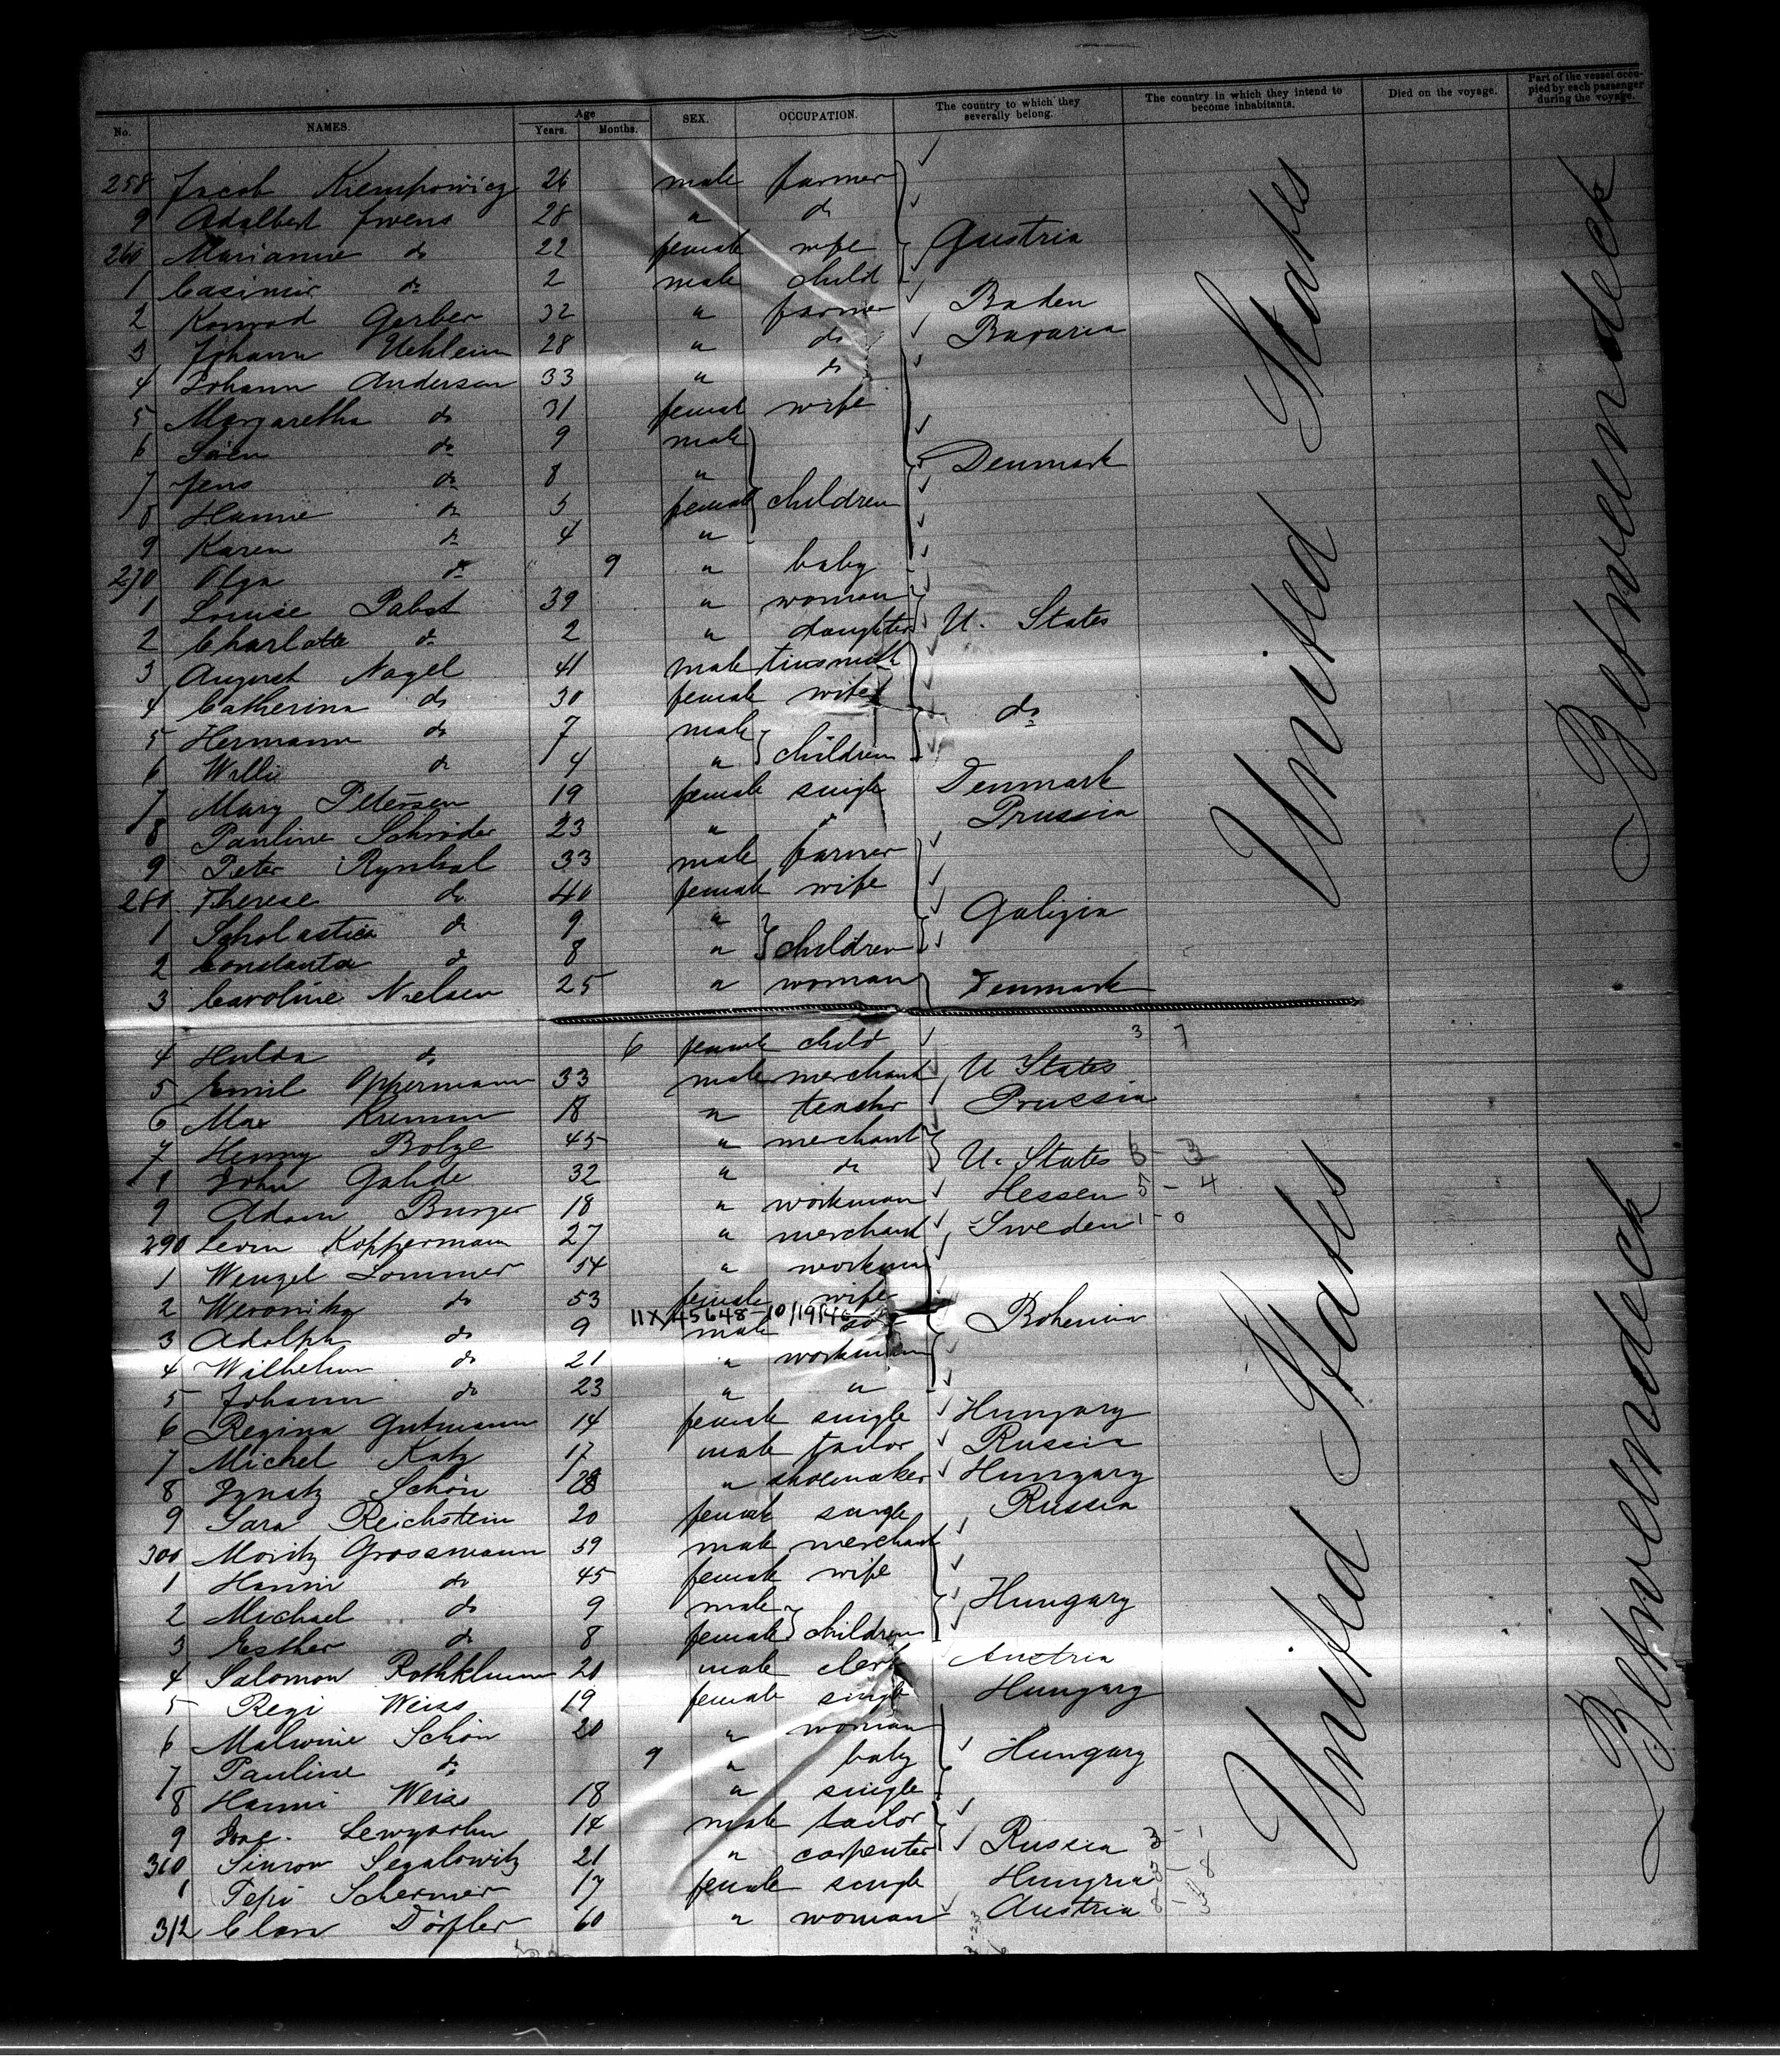 No. NAMES. Age Years. Months. SEX. OCCUPATION. The country to which they severally belong. The country in which they intend to become inhabitants. Died on the voyage. Part of the vessel occupied by each passenger during the voyage.
258 Jacob Krempowicz 26 male farmer
9 Adalbert Iwens 28 " do
260 Marianne do 22 female wife Austria
1 Casimir do 2 male child
2 Konrad Gerber 32 " farmer Baden
3 Johann Uehlein 28 " do Bavaria
4 Johann Andersen 33 " do
5 Margaretha do 31 female wife
6 Sören do 9 male
7 Jens do 8 " Denmark
8 Hanne do 5 female children
9 Karen do 4 "
270 Olga do 9 " baby
1 Louise Pabst 39 " woman
2 Charlotte do 2 " daughter U. States
3 August Nagel 41 male tinsmith
4 Catherina do 30 female wife do
5 Hermann do 7 male
6 Willi do 4 " children
7 Mary Petersen 19 female single Denmark
8 Pauline Schröder 23 " " Prussia
9 Peter 33 male farmer
280 Therese do 40 female wife
1 Scholastica do 9 " Galizia
2 Constantia do 8 " children
3 Caroline Nielsen 25 " woman Denmark
4 Hulda do 6 female child 3 7
5 Emil Oppermann 33 male merchant U States
6 Max Krumm 18 " teacher Prussia
7 Henny Bolze 45 " merchant
8 John Gahde 32 " do U. States 6 - 3
9 Adam Burger 18 " workman Hessen 5 - 4
290 Levin Koppermann 27 " merchant Sweden 1 - 0
1 Wenzel Sommer 54 " workman
2 Weronika do 53 female wife
11X/45648-10/19/46
3 Adolph do 9 male son Bohemia
4 Wilhelm do 21 " workman
5 Johann do 23 " "
6 Regina Gutmann 14 female single Hungary
7 Michel Katz 17 male tailor Russia
8 Ignatz Schön 28 " shoemaker Hungary
9 Sara Reichstein 20 female single Russia
300 Moritz Grossmann 59 male merchant
1 Hanni do 45 female wife
2 Michael do 9 male Hungary
3 Esther do 8 female children
4 Salomon Rothklumm 20 male clerk Austria
5 Regi Weiss 19 female single Hungary
6 Malwine Schön 20 " woman
7 Pauline do 9 " baby Hungary
8 Hanni Weiss 18 " single
9 Isac. 14 male tailor
310 Simron Segalowitz 21 " carpenter Russia 3 - 1
1 Tepi Schermer 17 female single Hungria 3 - 8
312 Clara Dörfler 60 " woman Austria
United States
Betweendeck
United States
Betweendeck